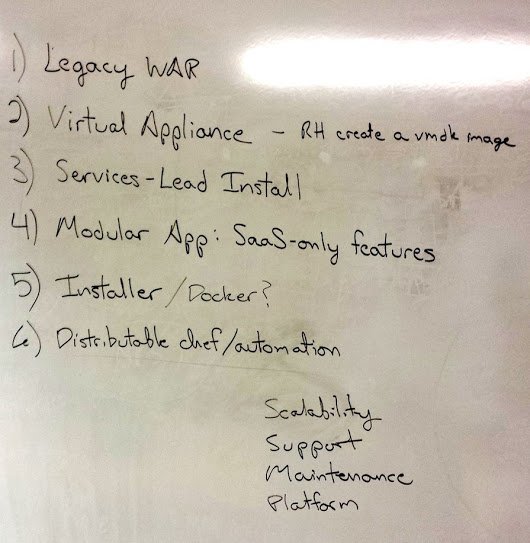 1) Legacy WAR
2) Virtual Appliance - RH create a vmdk image
3) Services-Lead Install
4) Modular App: SaaS-only features
5) Installer/Docker?
6) Distributable chef/automation
Scalability
Support
Maintenance
Platform